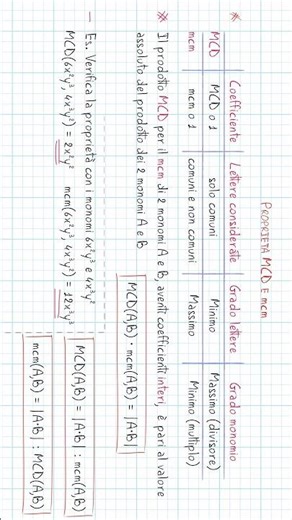 PROPRIETÀ MCD E mcm
* Coefficiente Lettere considerate Grado lettere Grado monomio
MCD MCD o 1 solo comuni Minimo Massimo (divisore)
mcm mcm o 1 comuni e non comuni Massimo Minimo (multiplo)
* Il prodotto MCD per il mcm di 2 monomi A e B, aventi coefficienti interi, è pari al valore
assoluto del prodotto dei 2 monomi A e B
MCD(A,B) · mcm(A,B) = |A·B|
– Es. Verifica la proprietà con i monomi 6x²y³ e 4x³y²
MCD(A,B) = |A·B| : mcm(A,B)
MCD(6x²y³, 4x³y²) = 2x²y² mcm(6x²y³, 4x³y²) = 12x³y³
mcm(A,B) = |A·B| : MCD(A,B)